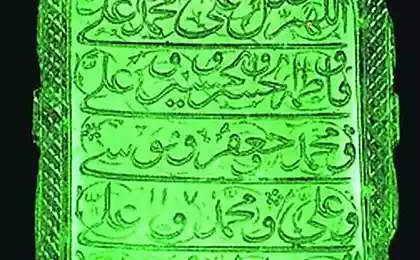 اللهم صل على محمد وعلي
وفاطمة والحسن والحسين وعلي
ومحمد وجعفر وموسى
وعلي ومحمد وعلي